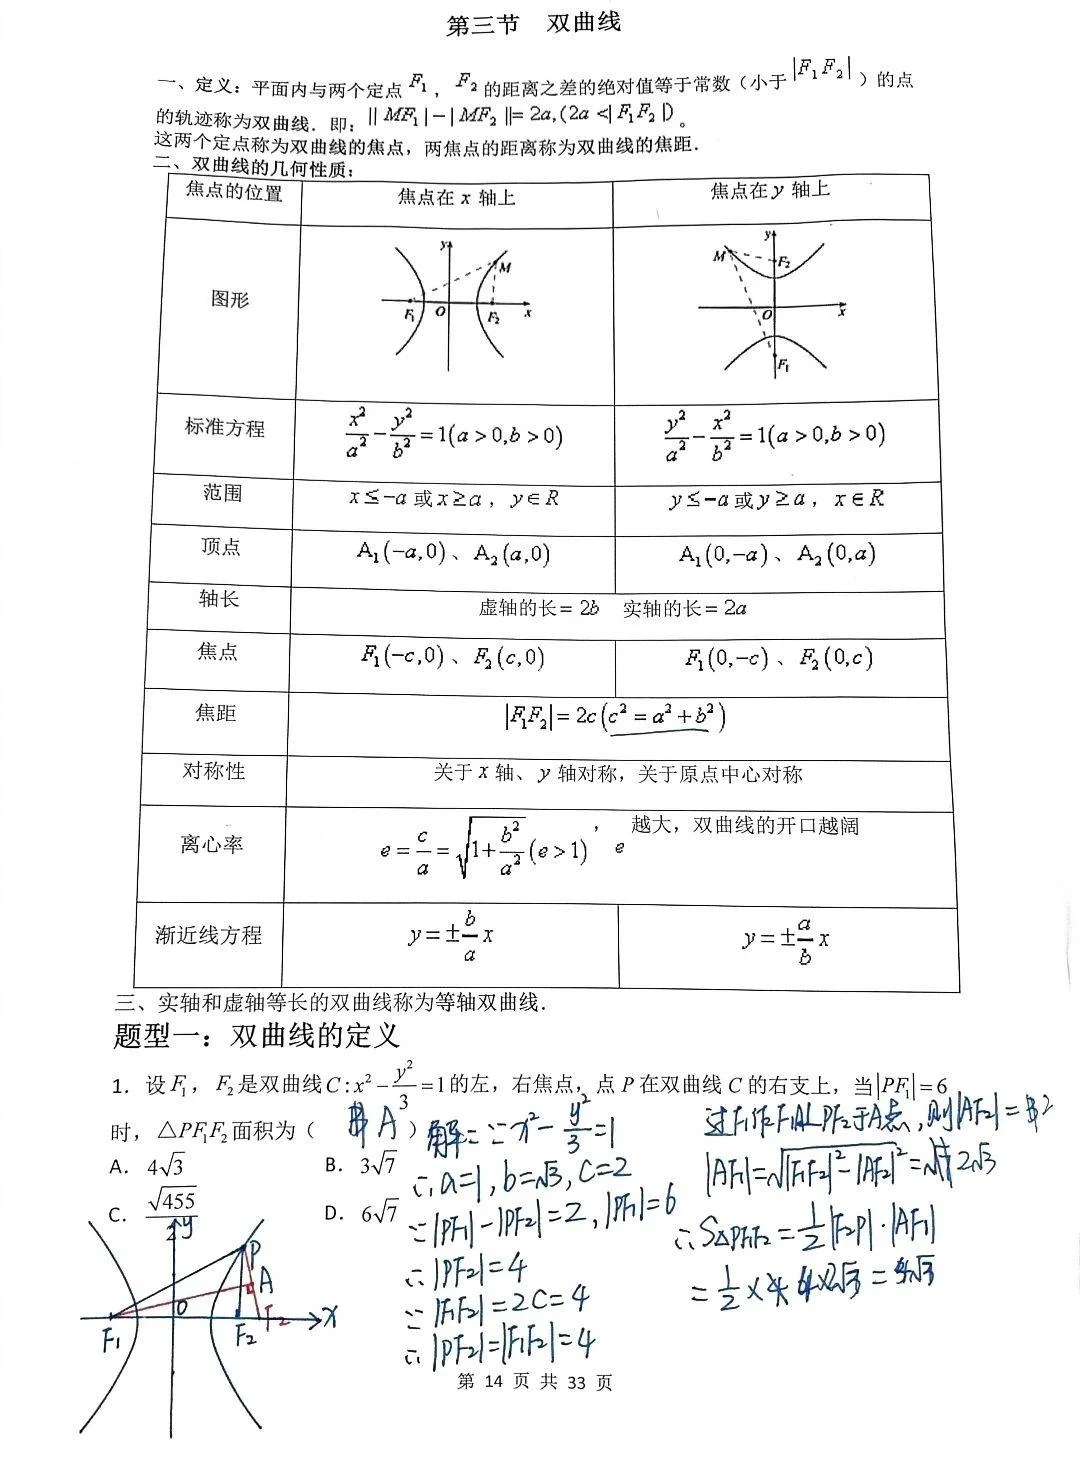 第三节 双曲线
一、定义：平面内与两个定点 F₁，F₂ 的距离之差的绝对值等于常数（小于 |F₁F₂|）的点
的轨迹称为双曲线．即：||MF₁|−|MF₂||=2a,(2a<|F₁F₂|)。
这两个定点称为双曲线的焦点，两焦点的距离称为双曲线的焦距．
二、双曲线的几何性质：
焦点的位置 焦点在 x 轴上 焦点在 y 轴上
图形
y M F₁ O F₂ x
y M F₂ O x F₁
标准方程 x²/a² − y²/b² = 1(a>0,b>0) y²/a² − x²/b² = 1(a>0,b>0)
范围 x≤−a 或 x≥a，y∈R y≤−a 或 y≥a，x∈R
顶点 A₁(−a,0)、A₂(a,0) A₁(0,−a)、A₂(0,a)
轴长 虚轴的长=2b 实轴的长=2a
焦点 F₁(−c,0)、F₂(c,0) F₁(0,−c)、F₂(0,c)
焦距 |F₁F₂|=2c(c²=a²+b²)
对称性 关于 x 轴、y 轴对称，关于原点中心对称
离心率 e=c/a=√(1+b²/a²)(e>1)，e 越大，双曲线的开口越阔
渐近线方程 y=±(b/a)x y=±(a/b)x
三、实轴和虚轴等长的双曲线称为等轴双曲线．
题型一：双曲线的定义
1．设 F₁，F₂ 是双曲线 C:x²−y²/3=1 的左，右焦点，点 P 在双曲线 C 的右支上，当|PF₁|=6
时，△PF₁F₂ 面积为（ A ）
A．4√3 B．3√7
C．√455/2 D．6√7
解：∵x²−y²/3=1
∴a=1,b=√3,c=2
∵|PF₁|−|PF₂|=2,|PF₁|=6
∴|PF₂|=4
∵|F₁F₂|=2c=4
∴|PF₂|=|F₁F₂|=4
过F₁作F₁A⊥PF₂于A点,则|AF₂|=2
|AF₁|=√(|F₁F₂|²−|AF₂|²)=2√3
∴S△PF₁F₂=1/2|F₂P|·|AF₁|
=1/2×4×2√3=4√3
y P A O F₁ F₂ F₂ x
第 14 页 共 33 页